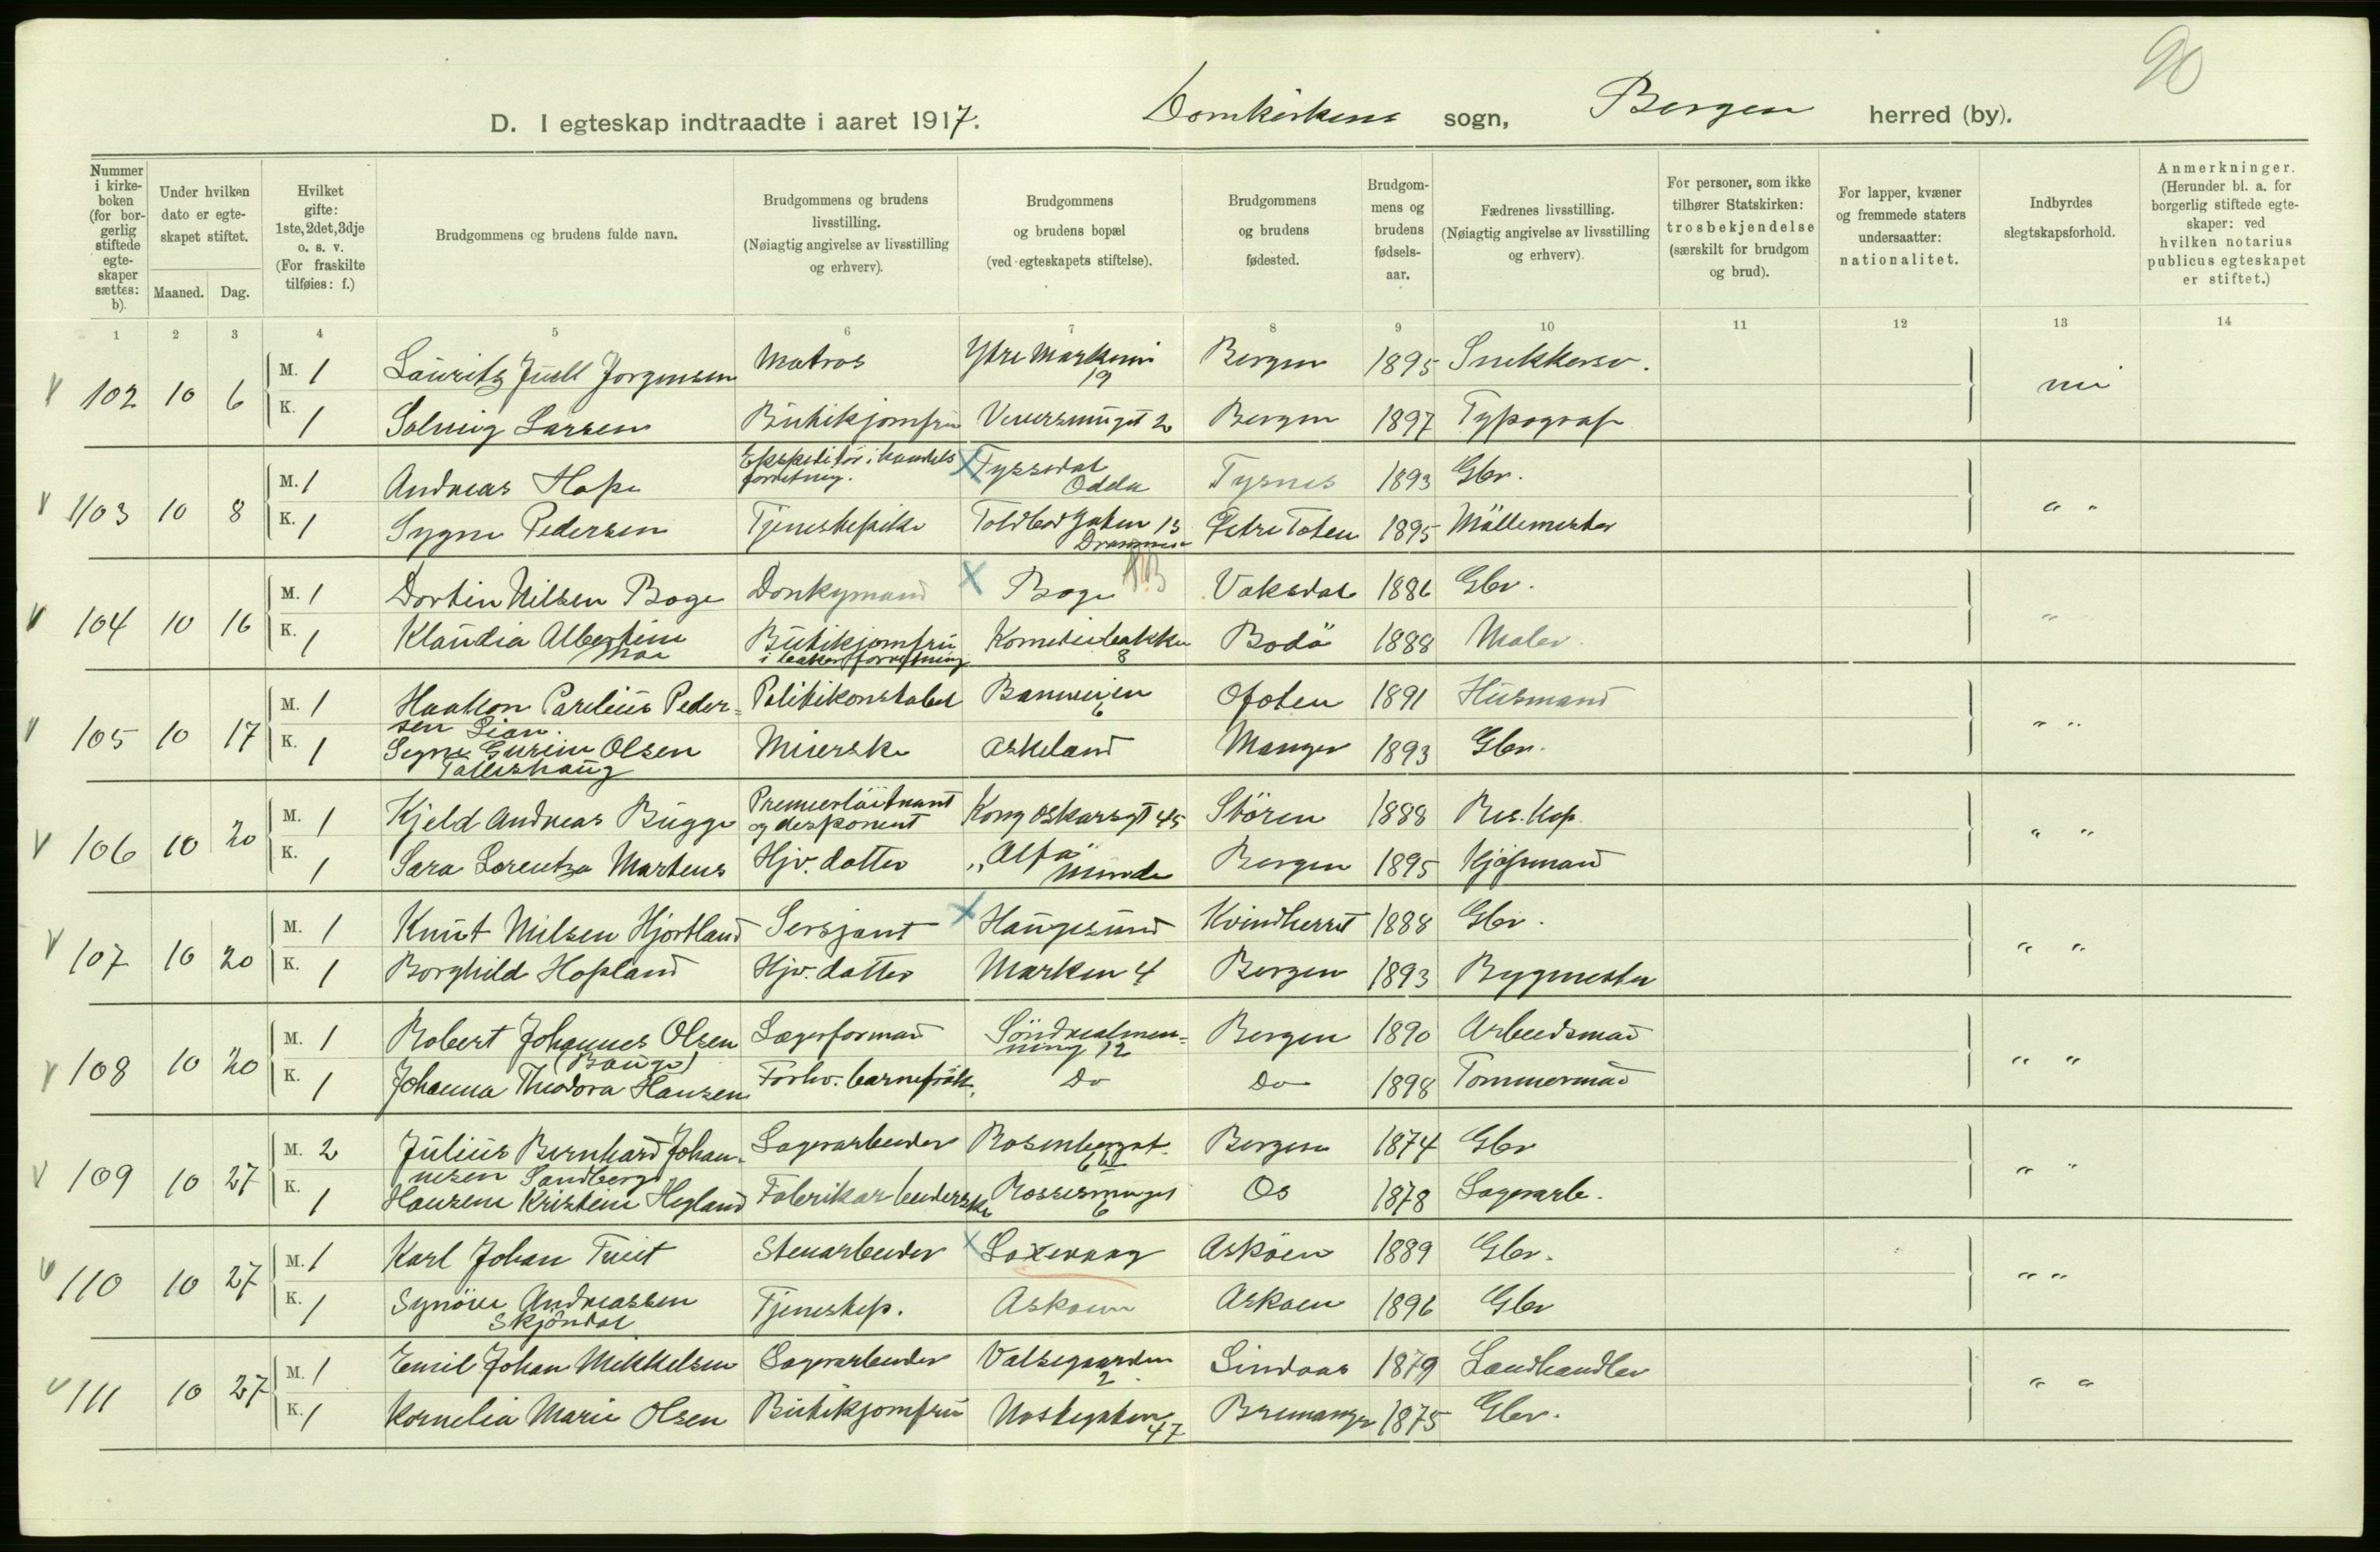 90
D. I egteskap indtraadte i aaret 1917. Domkirkens sogn, Bergen herred (by).
Nummer i kirkeboken (for borgerlig stiftede egteskaper sættes: b).
Under hvilken dato er egteskapet stiftet.
Maaned. Dag.
Hvilket gifte: 1ste, 2det, 3dje o. s. v. (For fraskilte tilføies: f.)
Brudgommens og brudens fulde navn.
Brudgommens og brudens livsstilling. (Nøiagtig angivelse av livsstilling og erhverv).
Brudgommens og brudens bopæl (ved egteskapets stiftelse).
Brudgommens og brudens fødested.
Brudgommens og brudens fødselsaar.
Fædrenes livsstilling. (Nøiagtig angivelse av livsstilling og erhverv).
For personer, som ikke tilhører Statskirken: trosbekjendelse (særskilt for brudgom og brud).
For lapper, kvæner og fremmede staters undersaatter: nationalitet.
Indbyrdes slegtskapsforhold.
Anmerkninger. (Herunder bl. a. for borgerlig stiftede egteskaper: ved hvilken notarius publicus egteskapet er stiftet.)
1 2 3 4 5 6 7 8 9 10 11 12 13 14
102 10 6 M. 1 Lauritz Juell Jorgensen Matros Ytre Markevei 19 Bergen 1895 Snekkersv. nei
K. 1 Solveig Larsen Butikjomfru Veversmuget 2 Bergen 1897 Typograf
103 10 8 M. 1 Andreas Hope Ekspeditör i handels forretning. Tyssedal Odda Tysnes 1893 Gbr. " "
K. 1 Sygne Pedersen Tjenestepike Toldbodgaten 13 Drammen Östre Toten 1895 Möllemester
104 10 16 M. 1 Dortin Nilsen Boge Donkymand Boge Vaksdal 1886 Gbr. "
K. 1 Klaudia Albertine Moe Butikjomfru i bakerforretning Komediebakken 8 Bodö 1888 Maler
105 10 17 M. 1 Haakon Parelius Pedersen Lian. Politikonstabel Banveien 6 Ofoten 1891 Husmand " "
K. 1 Segne Gurine Olsen Tolleshaug Meierske Askeland Manger 1893 Gbr.
106 10 20 M. 1 Kjeld Andreas Bugge Premierlöitnant og disponent Kong Oskarsgt 45 Stören 1888 Res. Kap. " "
K. 1 Sara Lorentza Martens Hjv. datter "Alfa" Minde Bergen 1895 Kjöpmand
107 10 20 M. 1 Knut Nilsen Hjortland Sersjant Haugesund Kvindherred 1888 Gbr. " "
K. 1 Borghild Hopland Hjv. datter Marken 4 Bergen 1893 Bygmester
108 10 20 M. 1 Robert Johannes Olsen (Bauge) Lagerformand Söndrealmenning 12 Bergen 1890 Arbeidsmand " "
K. 1 Johanna Theodora Hansen Forhv. barnefrök. Do Do 1898 Tömmermand
109 10 27 M. 2 Julius Bernhard Johannesen Sandberg Lagerarbeider Rosenberggt. Bergen 1874 Gbr " "
K. 1 Hansene Kristine Hegland Fabrikarbeiderske Rossesmuget 6 Os 1878 Lagerarb.
110 10 27 M. 1 Karl Johan Tveit Stenarbeider Laxevaag Asköen 1889 Gbr. " "
K. 1 Synöve Andreassen Skjöndal Tjenestep. Asköen Asköen 1896 Gbr
111 10 27 M. 1 Emil Johan Mikkelsen Lagerarbeider Valsegaarden 2 Lindaas 1879 Landhandler " "
K. 1 Kornelia Marie Olsen Butikjomfru Nostegaten 47 Bremanger 1875 Gbr.